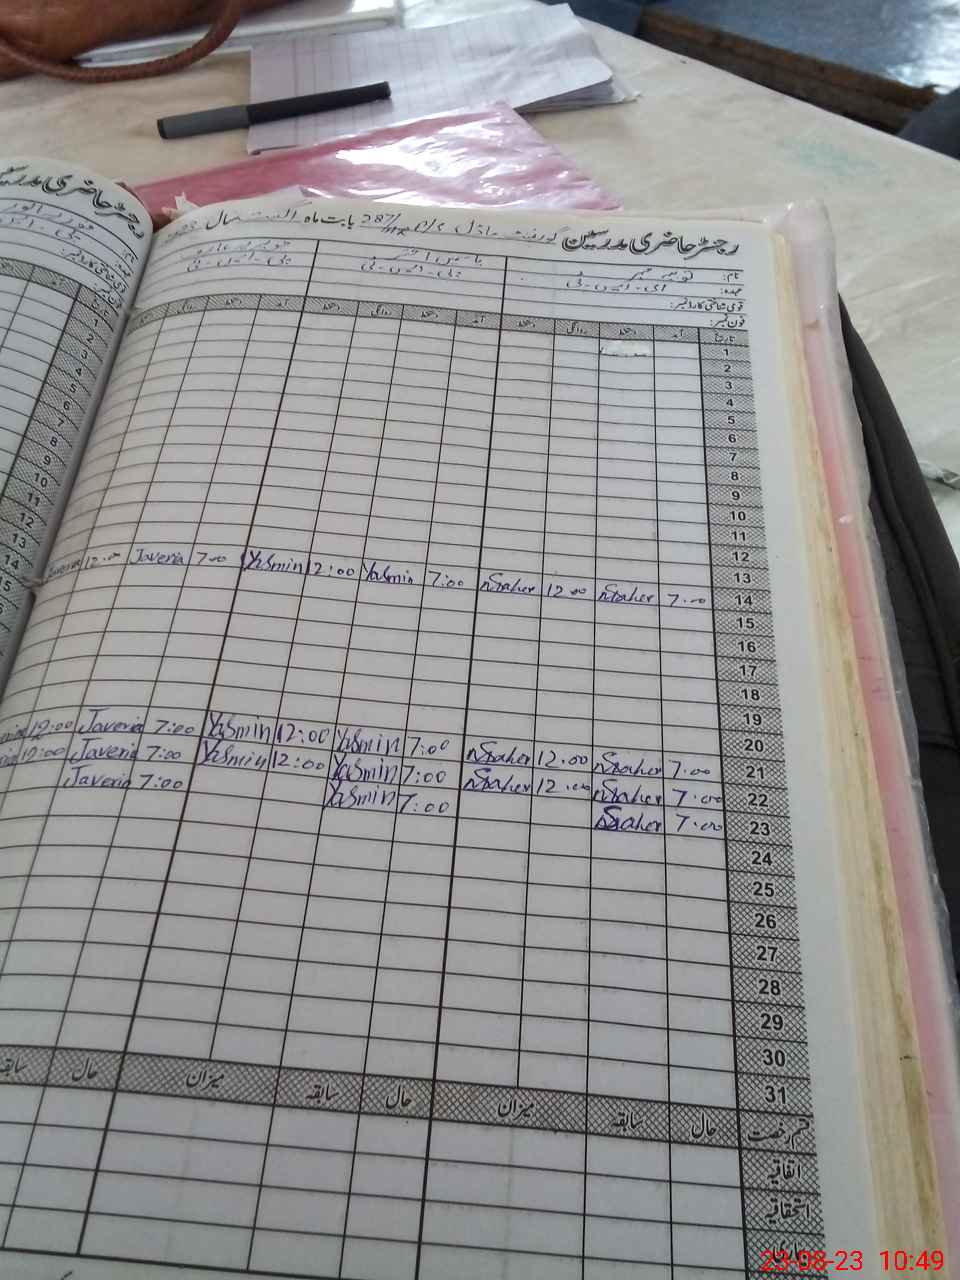 رجسٹر حاضری مدرسین گورنمنٹ ماڈل P/S 287/HR بابت ماہ اگست سال 2023
نام:
عہدہ: ای-ایس-ٹی
یاسمین اختر
پی-ایس-ٹی
پی-ایس-ٹی
قومی شناختی کارڈ نمبر:
فون نمبر:
تاریخ آمد دستخط روانگی دستخط آمد دستخط روانگی دستخط آمد دستخط روانگی
1
2
3
4
5
6
7
8
9
10
11
12
13
14 7.00 NSaher 12.00 NSaher 7:00 Yasmin 12:00 Yasmin 7.00 Javeria 12.00 Javeria
15
16
17
18
19
20
21 7.00 NSaher 12.00 NSaher 7:00 Yasmin 12:00 Yasmin 7:00 Javeria 12:00
22 7.00 NSaher 12.00 NSaher 7:00 Yasmin 12:00 Yasmin 7:00 Javeria 12:00
23 7.00 NSaher 7:00 Yasmin 7:00 Javeria
24
25
26
27
28
29
30
31
قسم رخصت حال سابقہ میزان حال سابقہ میزان حال سابقہ
اتفاقیہ
استحقاقیہ
رجسٹر حاضری مدرسین
1
2
3
4
5
6
7
8
9
10
11
12
13
14
15
23-08-23 10:49